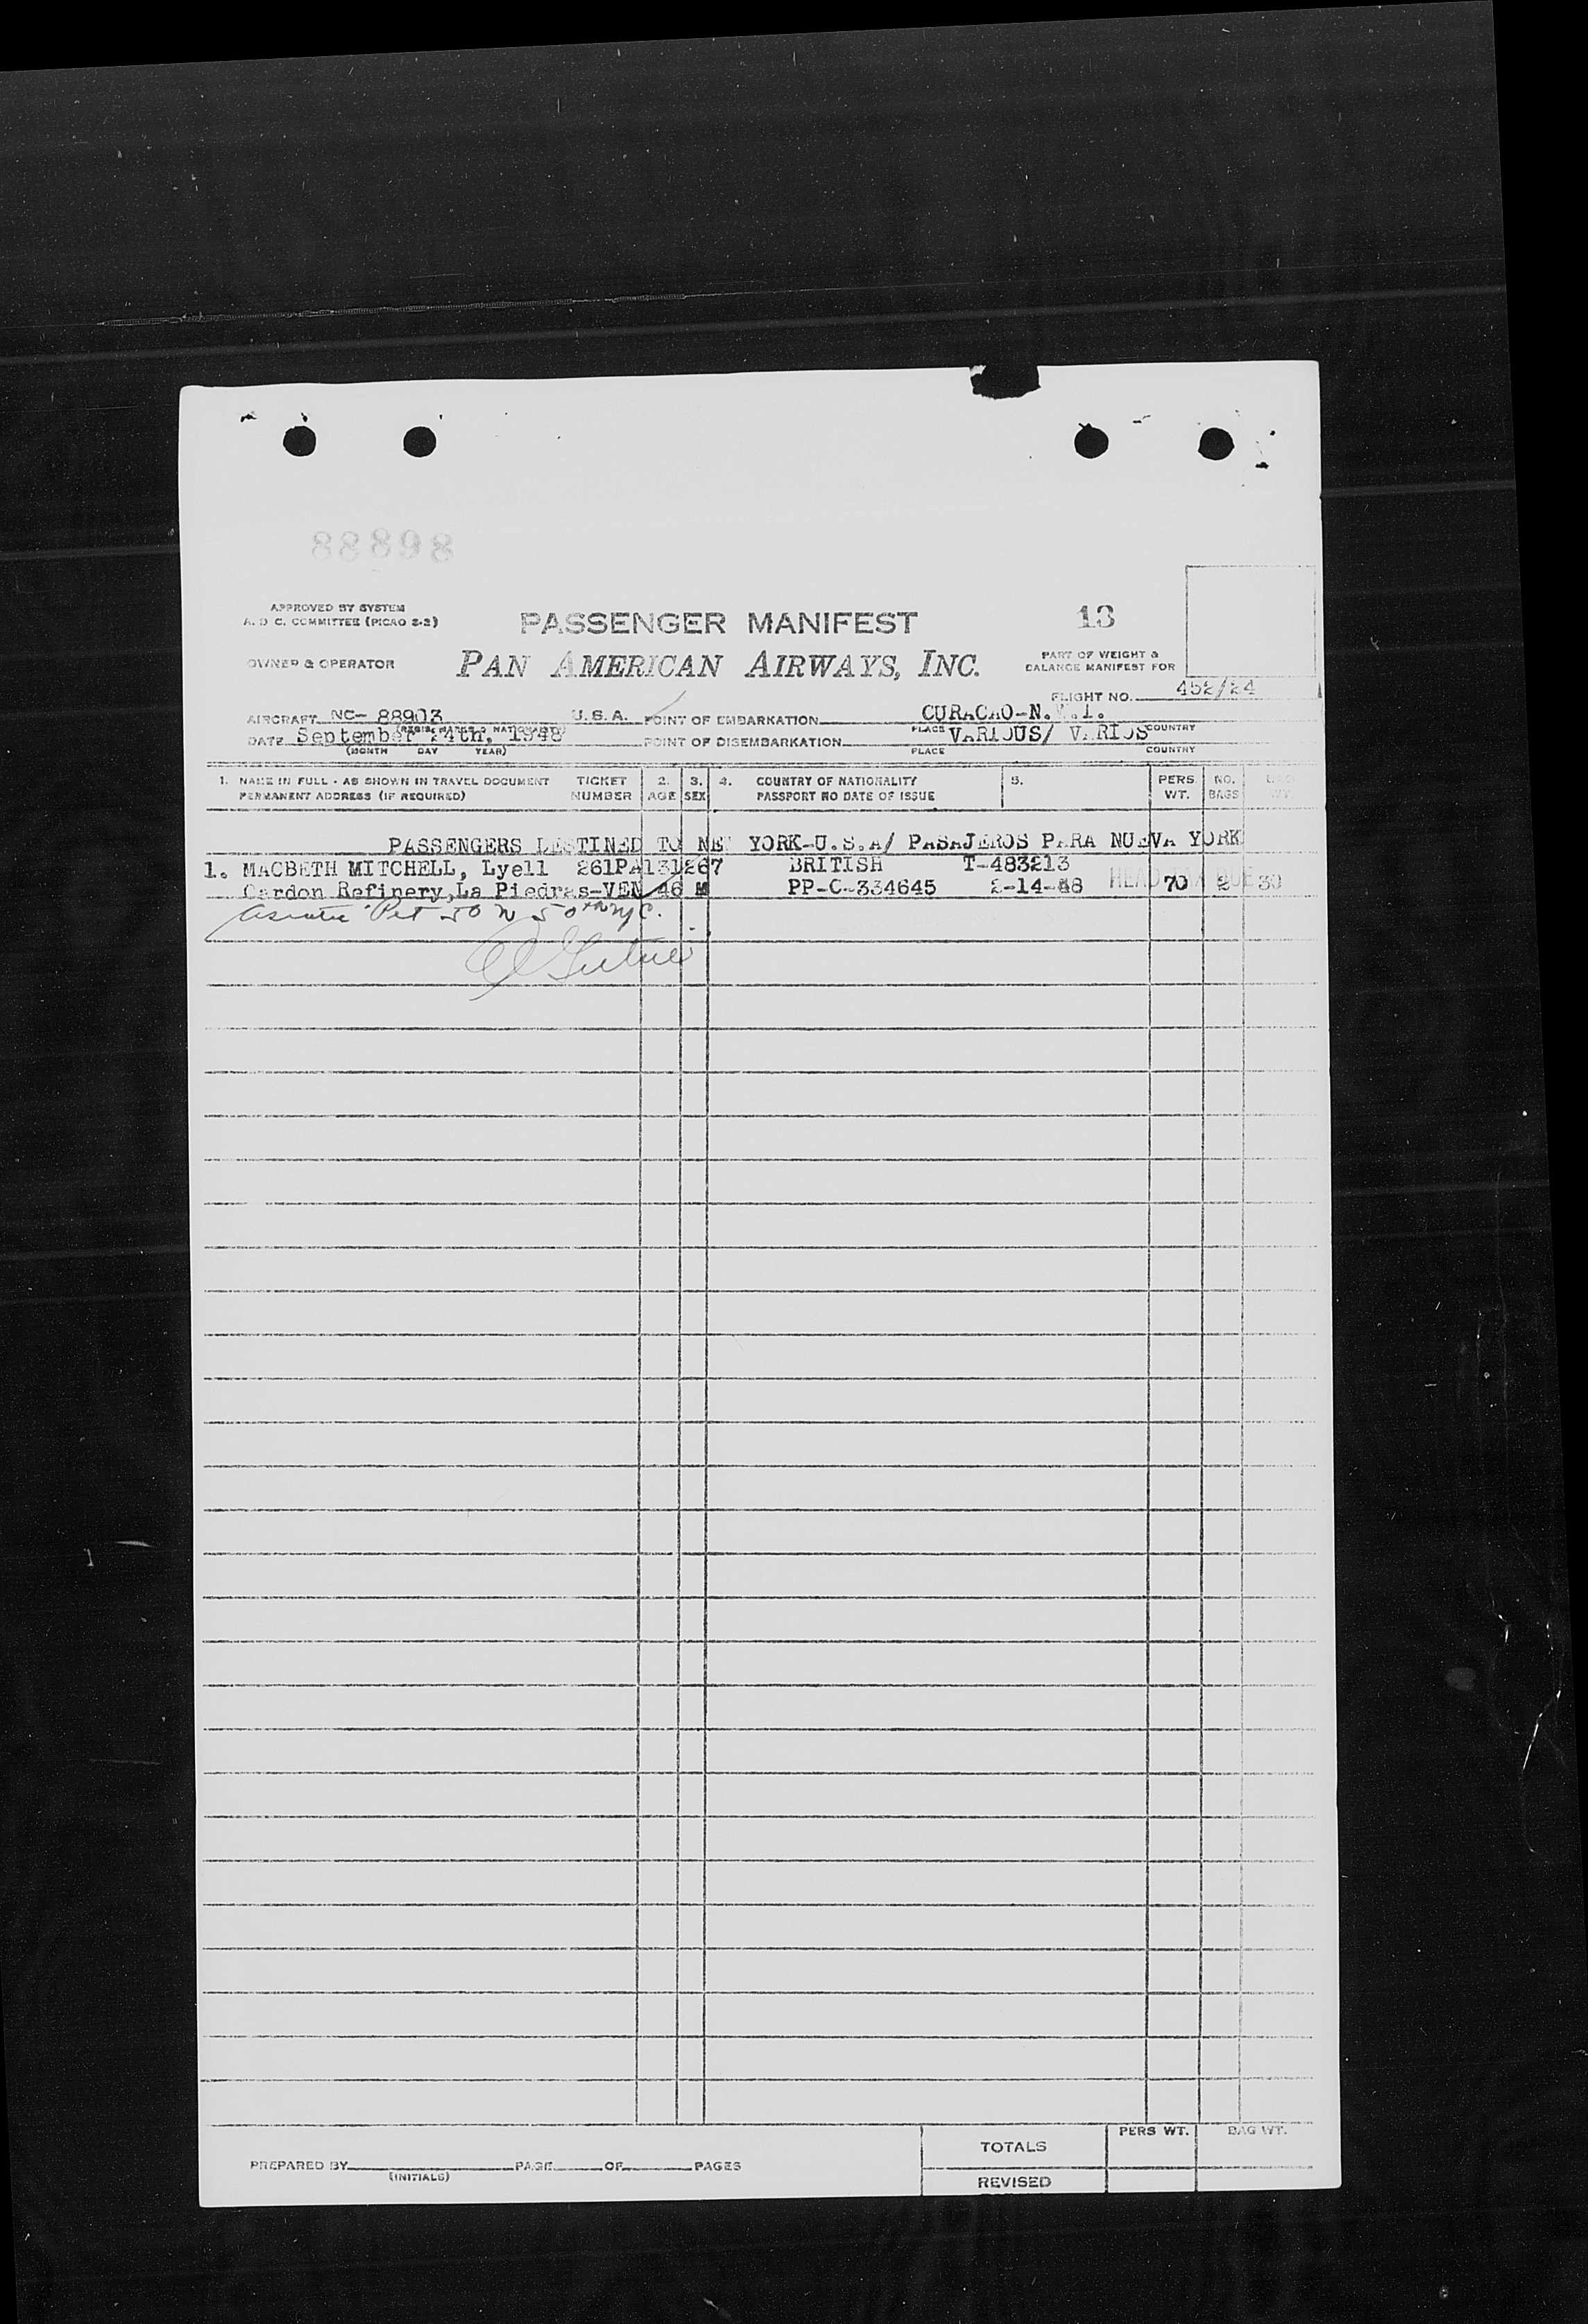 88898
APPROVED BY SYSTEM
A. O C. COMMITTEE (PICAO 2-2)
PASSENGER MANIFEST
13
OWNER & OPERATOR
PAN AMERICAN AIRWAYS, INC.
PART OF WEIGHT &
BALANCE MANIFEST FOR
FLIGHT NO. 452/24
AIRCRAFT NC- 88903 U.S.A. POINT OF EMBARKATION CURACAO-N.W.I.
DATE September 24th, 1948 POINT OF DISEMBARKATION VARIOUS/ VARIOS
PLACE COUNTRY
(MONTH DAY YEAR) PLACE COUNTRY
1. NAME IN FULL - AS SHOWN IN TRAVEL DOCUMENT TICKET 2. 3. 4. COUNTRY OF NATIONALITY 5. PERS NO. BAG
PERMANENT ADDRESS (IF REQUIRED) NUMBER AGE SEX PASSPORT NO DATE OF ISSUE WT. BAGS WT.
PASSENGERS DESTINED TO NEW YORK-U.S.A/ PASAJEROS PARA NUEVA YORK
1. MACBETH MITCHELL, Lyell 261PA131267 BRITISH T-483213
Cardon Refinery,La Piedras-VEN 46 M PP-C-334645 2-14-48 HEAD TAX DUE 70 2 30
Asiatic Pet 50 W 50th NYC.
TOTALS PERS WT. BAG WT.
PREPARED BY PAGE OF PAGES
(INITIALS)
REVISED